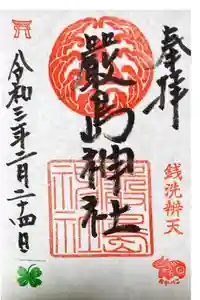 奉拝
嚴島神社
銭洗辨天
令和三年二月二十四日